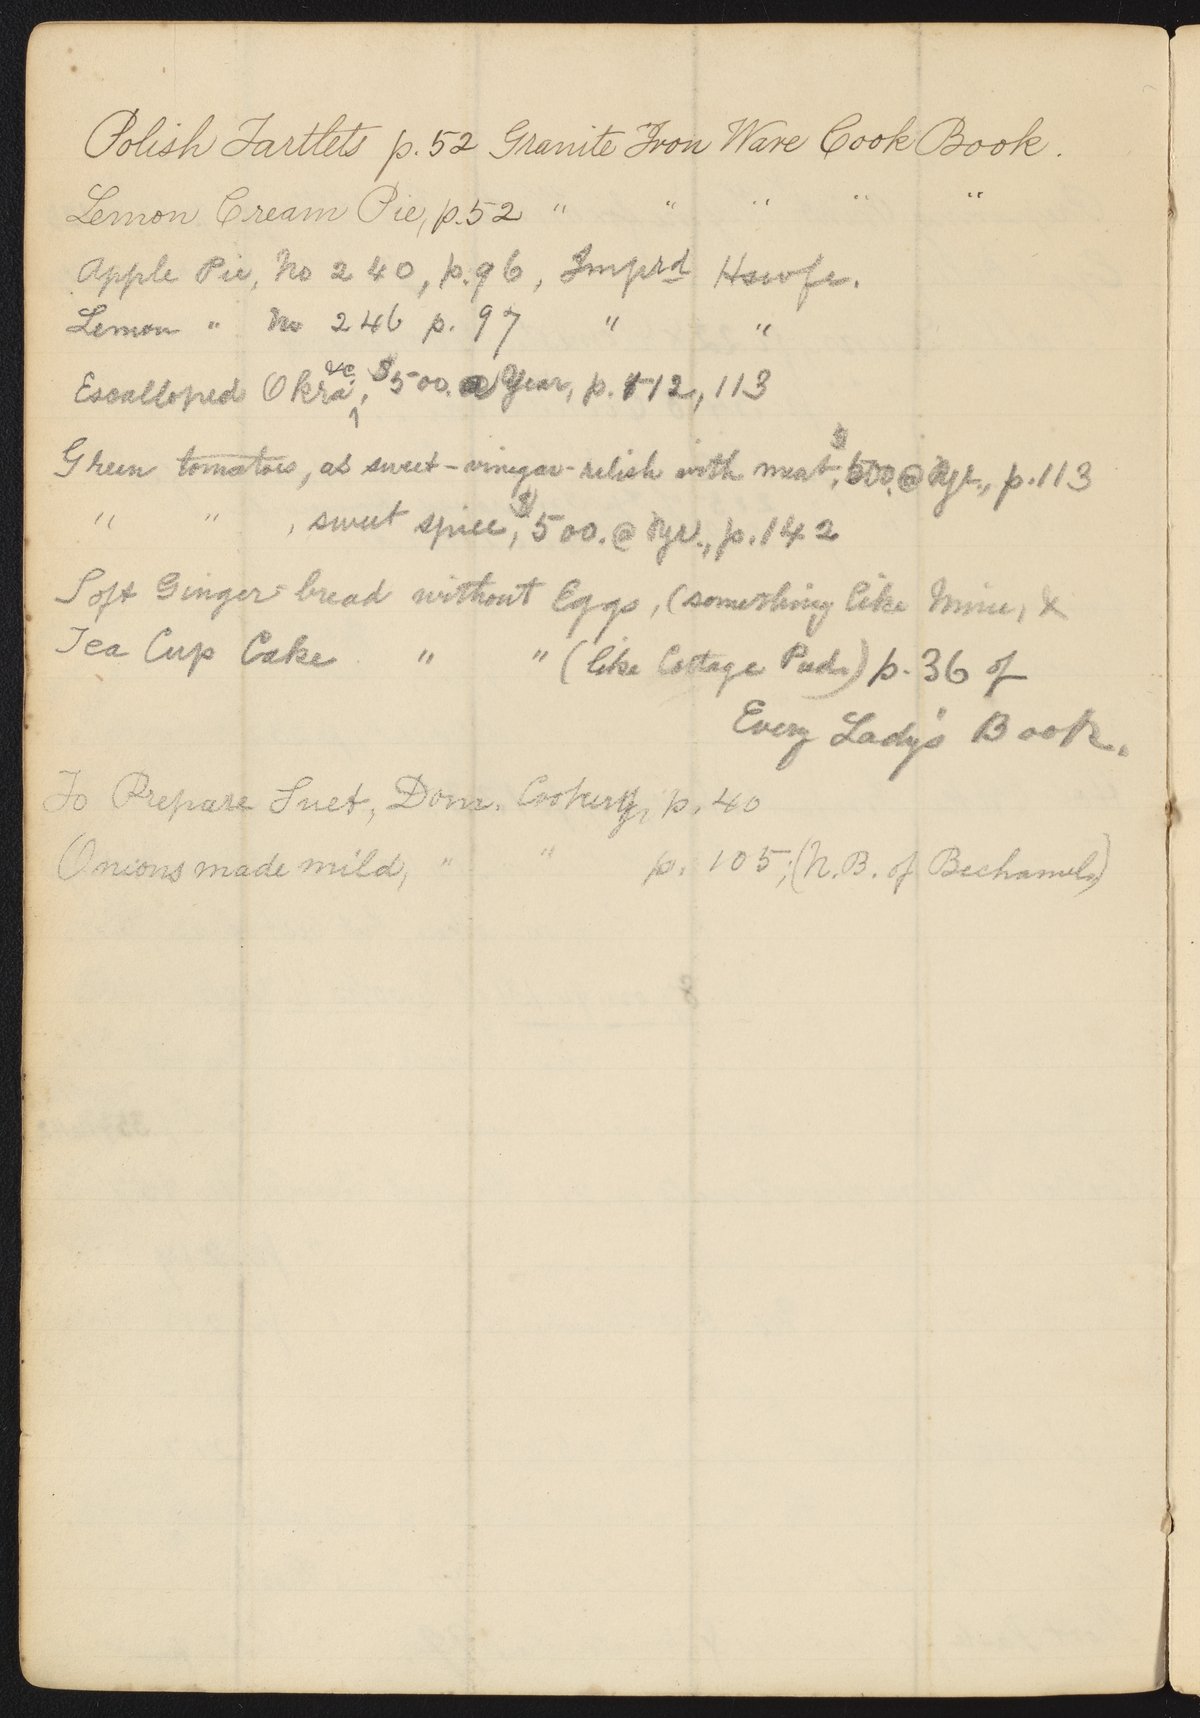 Polish Tartlets p. 52 Granite Iron Ware Cook Book.
Lemon Cream Pie, p. 52 " " " " "
Apple Pie, No 240, p. 96, Imprd Hswfe.
Lemon " No 246 p. 97 " "
Escalloped Okra &c, $500. a Year, p. 112, 113
Green tomatoes, as sweet-vinegar-relish with meat, $500. @ Yr., p. 113
" " , sweet spice, $500. @ Yr., p. 142
Soft Ginger-bread without Eggs, (something like Mine, &
Tea Cup Cake " " (like Cottage Pud.) p. 36 of
Every Lady's Book.
To Prepare Suet, Dom. Cookery, p. 40
Onions made mild, " " p. 105; (N.B. of Bechamels)